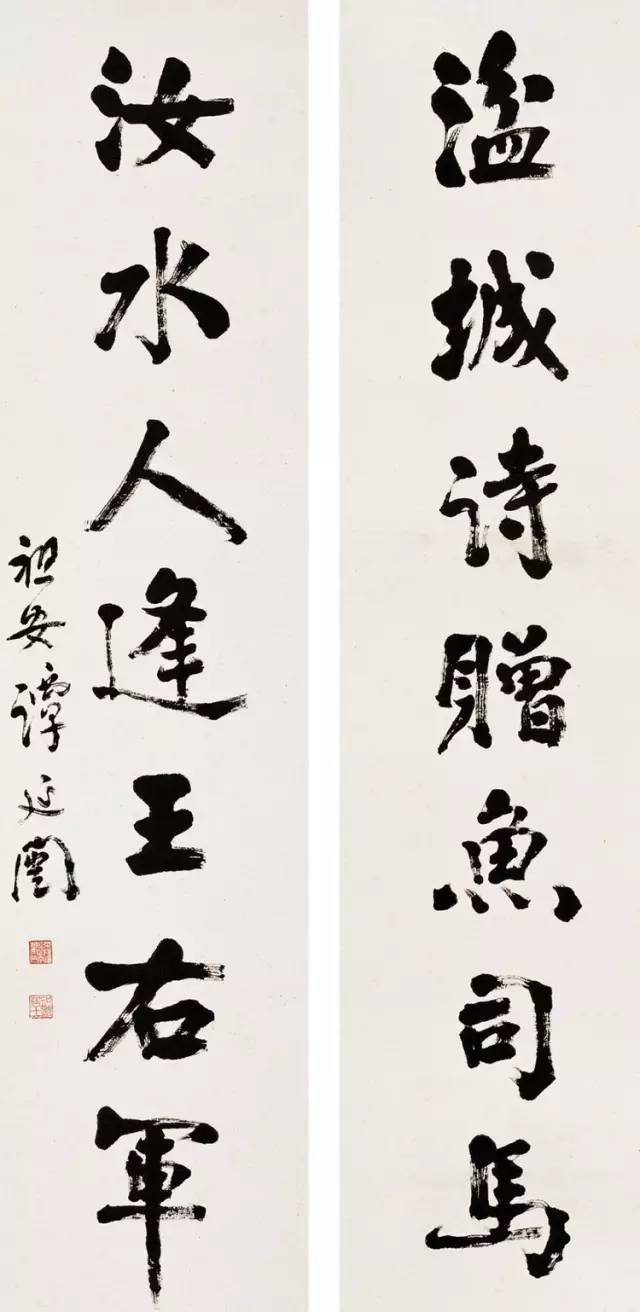 溢城詩贈魚司馬
汝水人逢王右軍
祖安譚延闓